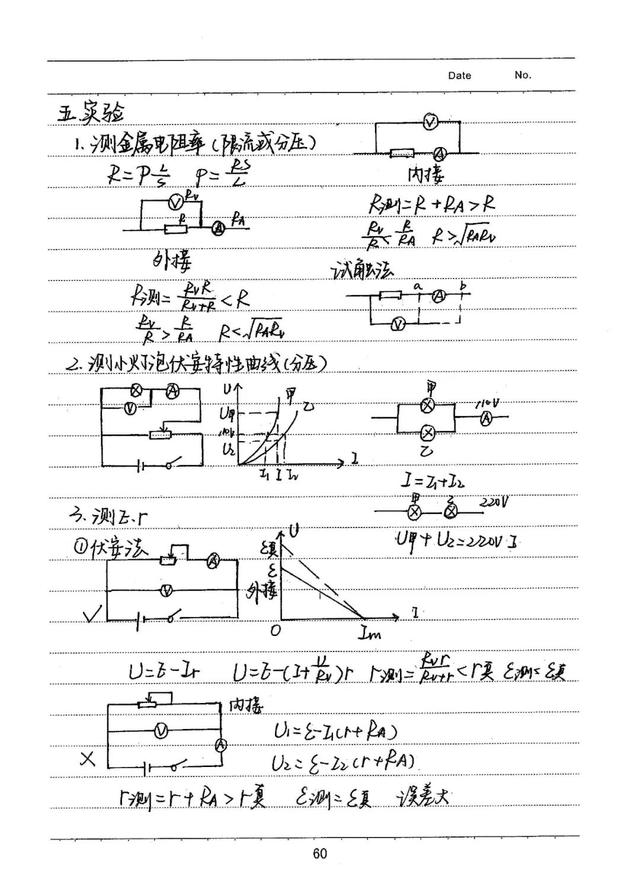 Date No.
五.实验
1.测金属电阻率(限流或分压)
R=ρL/S ρ=RS/L
V Rv
R A RA
外接
R测=RvR/(Rv+R)<R
Rv/R>R/RA R<√RARv
V
A
内接
R测=R+RA>R
Rv/R<R/RA R>√RARv
试触法
a b
A
V
2.测小灯泡伏安特性曲线(分压)
A
V
U 甲 乙
U甲
110V
U乙
I1 I I2 I
甲 110V
A
乙
I=I1+I2
甲 乙 220V
U甲+U乙=220V I
3.测E.r
①伏安法
A
V
✓
U
ε真
ε
外接
O Im I
U=E-Ir U=E-(I+U/Rv)r r测=Rvr/(Rv+r)<r真 ε测<ε真
内接
V
A
×
U1=ε-I1(r+RA)
U2=ε-I2(r+RA)
r测=r+RA>r真 ε测=ε真 误差大
60